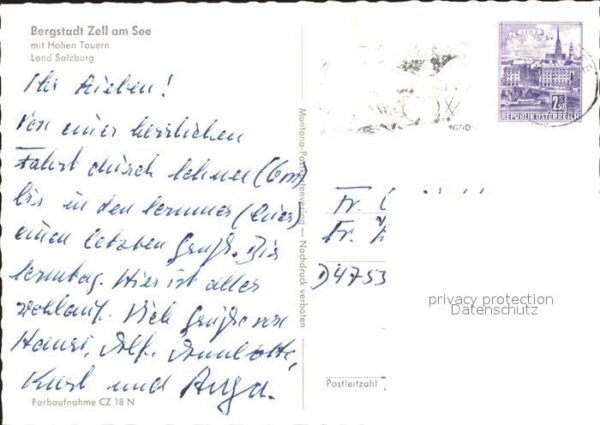 Bergstadt Zell am See
mit Hohen Tauern
Land Salzburg
Ihr Lieben!
Von einer herrlichen
Fahrt durch Schnee (6m)
bis in den Sommer (hier)
einen letzten Gruß. Bis
Sonntag. Hier ist alles
wohlauf. Viele Grüße von
Hansi, Alf, Annelotte,
Kurt und Anga.
Farbaufnahme CZ 18 N
Montana-Postkartenverlag — Nachdruck verboten
2.50
REPUBLIK ÖSTERREICH
Fr.
Fr.
D 4753
privacy protection
Datenschutz
Postleitzahl